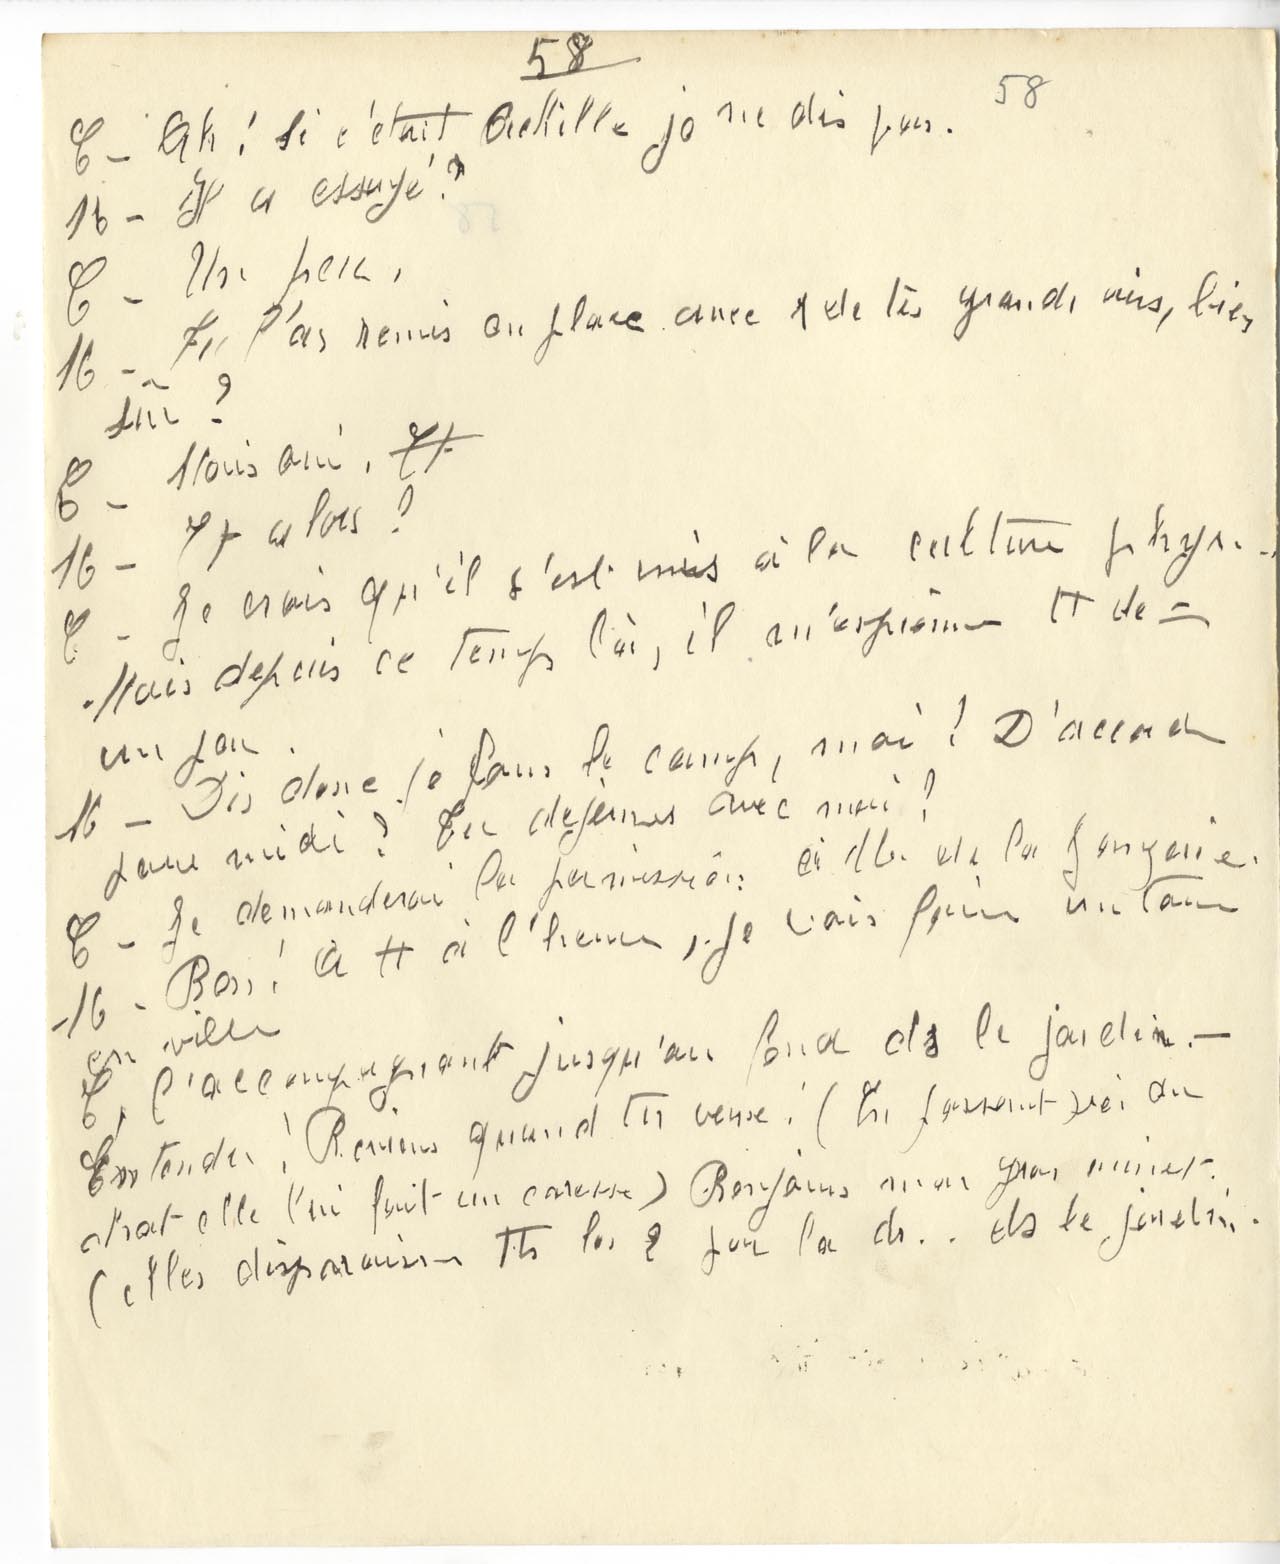 58
58
C - Ah! Si c'était Achille je ne dis pas.
M - Il a essayé?
C - Un peu.
M - Tu l'as remis en place avec de tes grands airs, bien
sûr?
C - Mais oui. Et
M - Et alors?
C - Je crois qu'il s'est mis à la culture phys..
Mais depuis ce temps là, il m'espionne tt de =
un peu.
M - Dis donc je fous le camp, moi! D'accord
pour midi? Tu déjeunes avec moi?
C - Je demanderai la permission à Mr de la
M - Bon! A tt à l'heure, je vais faire un tour
en ville
C, l'accompagnant jusqu'au fond ds le jardin. -
Entendu! Reviens quand tu veux! (En passant au
chat elle lui fait une caresse) Benjamin mon gros minet.
(elles disparaissent tts les 2 par la dr.. ds le jardin.